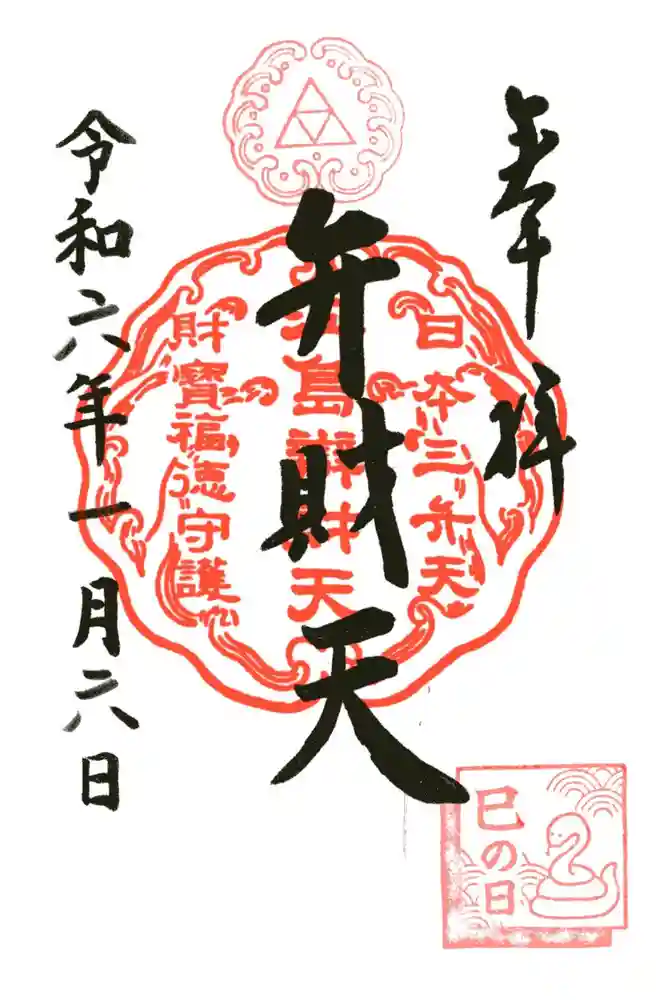 奉拝
日本三弁天
江島辨財天
弁財天
財寶福徳守護
令和六年一月六日
巳の日